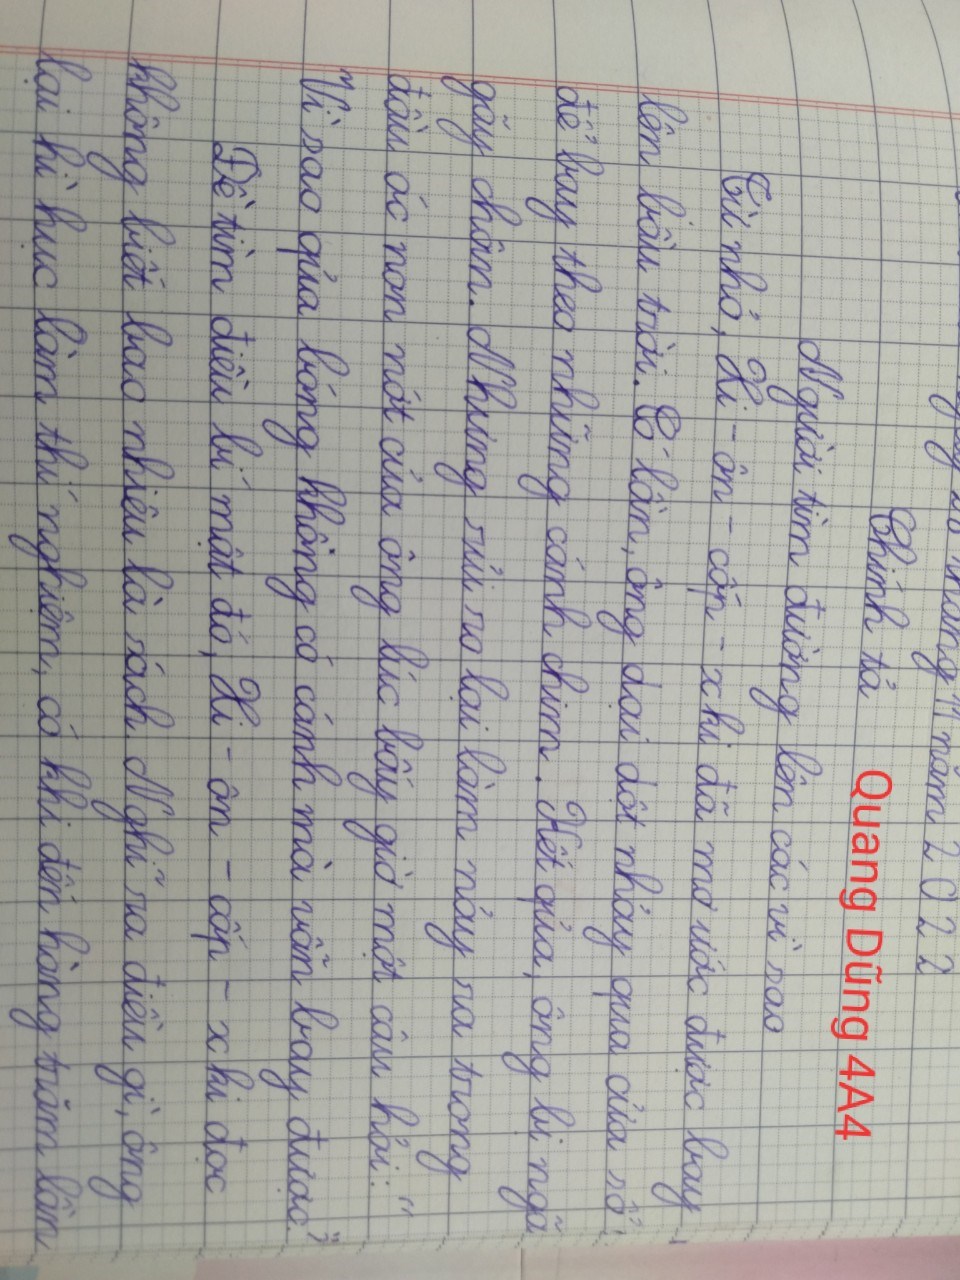 tháng 11 năm 2022
Chính tả
Quang Dũng 4A4
Người tìm đường lên các vì sao
Từ nhỏ, Xi-ôn-cốp-xki đã mơ ước được bay
lên bầu trời. Có lần, ông dại dột nhảy qua cửa sổ
để bay theo những cánh chim. Kết quả, ông bị ngã
gãy chân. Nhưng rủi ro lại làm nảy ra trong
đầu óc non nớt của ông lúc bấy giờ một câu hỏi: "
"Vì sao quả bóng không có cánh mà vẫn bay được?"
Để tìm điều bí mật đó, Xi-ôn-cốp-xki đọc
không biết bao nhiêu là sách. Nghĩ ra điều gì, ông
lại hì hục làm thí nghiệm, có khi đến hàng trăm lần